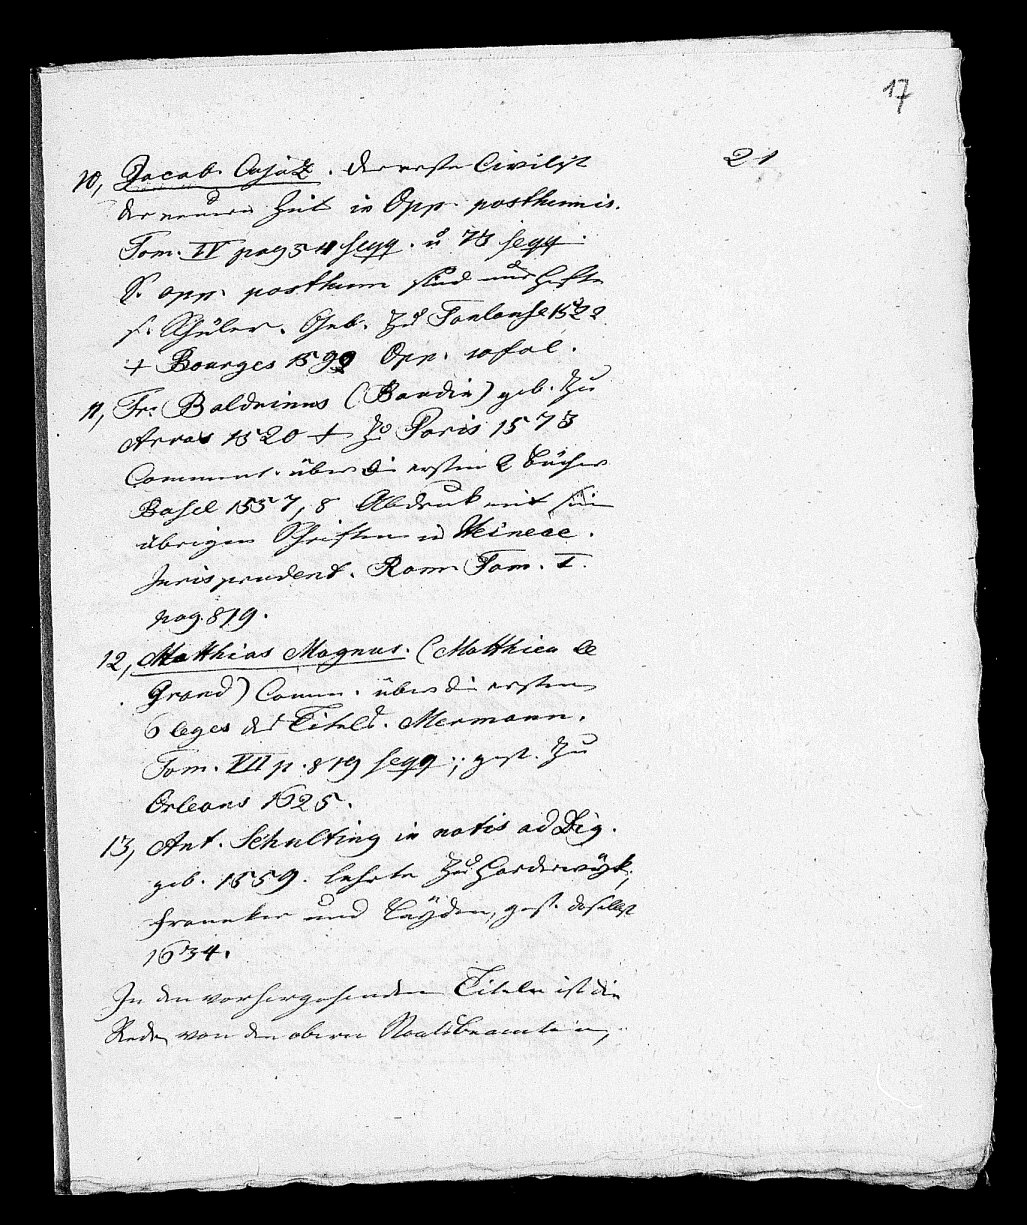 17
21
10, Jacob Cujáz. der erste Civilist
der neuern Zeit in Opp. posthumis.
Tom. IV pag 54 seqq. u 73 seqq.
S. opp. posthum sind nur Hefte
s. Schüler. Geb. zu Toulouse 1522
+ Bourges 1590 Opp. 10 fol.
11, Fr: Balduinus (Baudin) geb. zu
Arras 1520 + zu Paris 1573
Comment. über die ersten 2 Bücher
Basel 1557, 8 Abdruck mit sein
übrigen Schriften in Heinecc.
Jurisprudent. Rom. Tom. I.
pag. 819.
12, Matthias Magnus. (Matthieu le
Grand) Comm. über die ersten
6 leges des Titels. Mermann.
Tom. VII p. 819 seqq; gest. zu
Orleans 1625.
13, Ant. Schulting in notis ad Dig.
geb. 1559. lehrte zu Harderwÿk,
Franeker und Leÿden, gest. daselbst
1634.
In den vorhergehenden Titeln ist die
Rede von den obern Staatsbeamten,